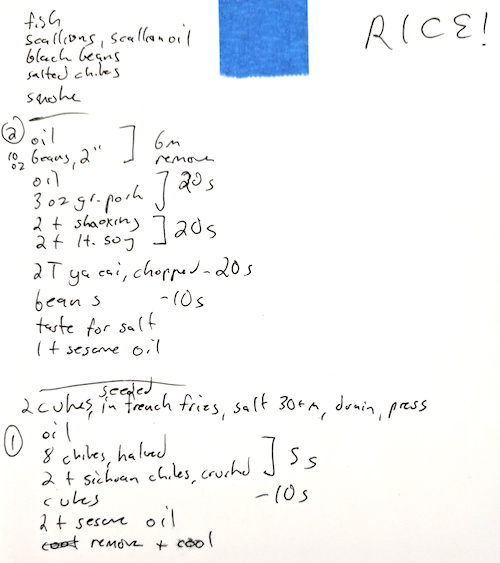 fish
scallions, scallion oil
black beans
salted chiles
smoke
RICE!
② oil
10 oz beans, 2" ] 6m remove
oil
3 oz gr. pork ] 20s
2 t shaoxing
2 t lt. soy ] 20s
2T ya cai, chopped - 20s
beans - 10s
taste for salt
1 t sesame oil
seeded
2 cukes, in french fries, salt 30+m, drain, press
① oil
8 chiles, halved
2 t sichuan chiles, crushed ] 5s
cukes - 10s
2 t sesame oil
remove + cool